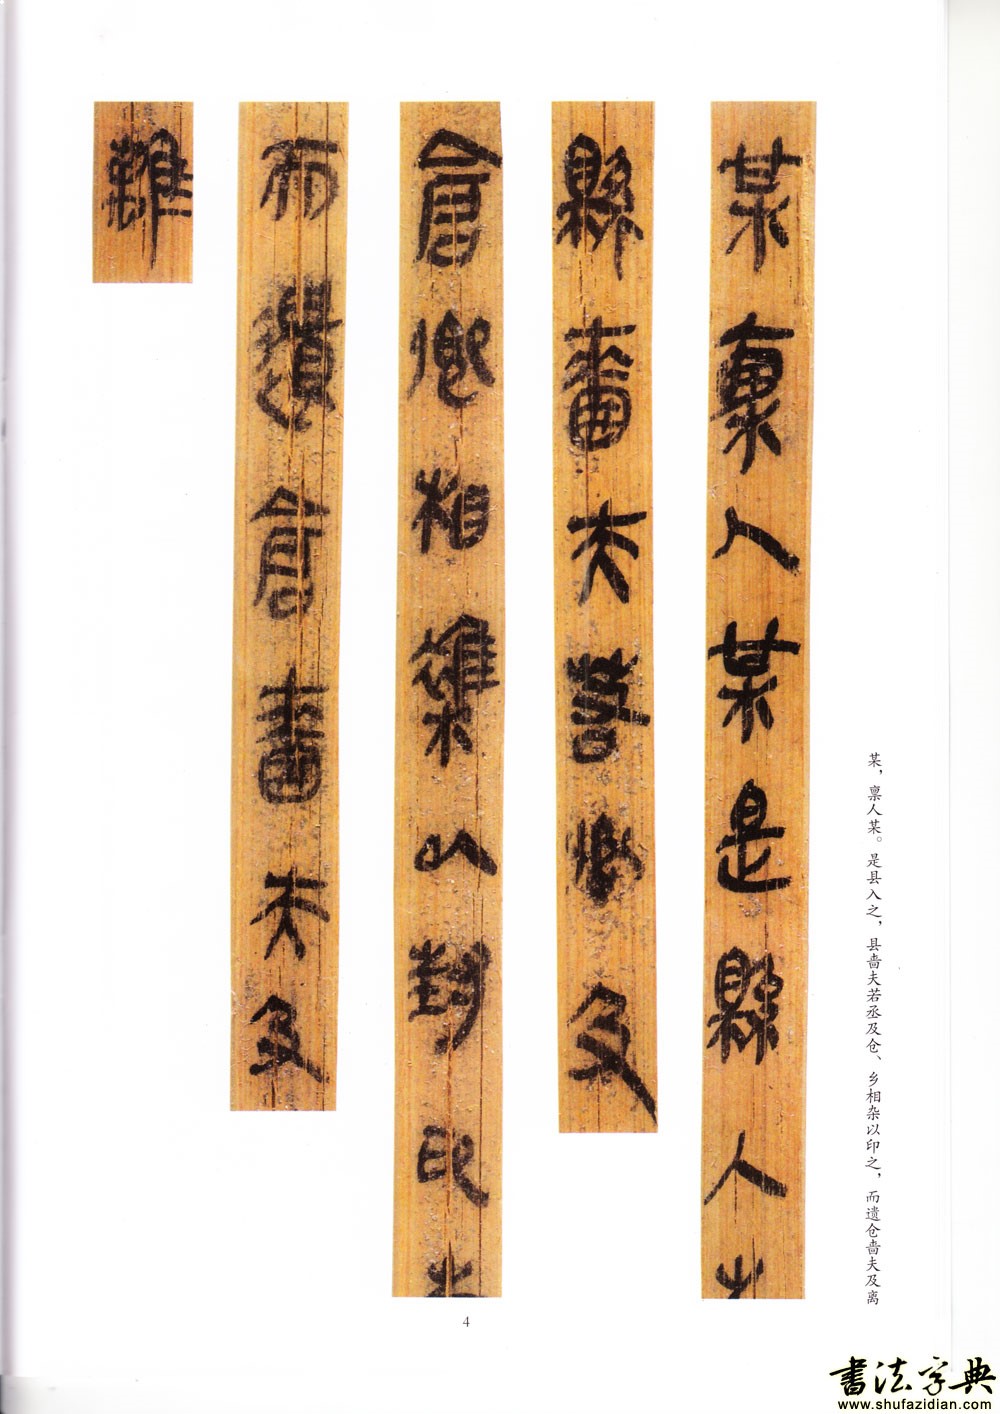 某，禀人某。是县入之，县啬夫若丞及仓、乡相杂以印之，而遗仓啬夫及离
某稟人某是縣入之
縣嗇夫若丞及
倉鄉相雜以封印之
而遺倉嗇夫及
離
4
書法字典
www.shufazidian.com